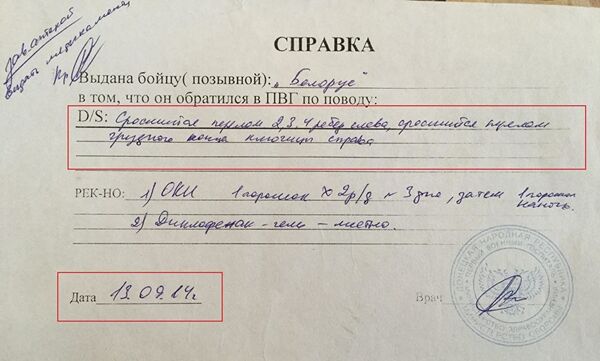 зав. аптекой
выдать медикаменты
СПРАВКА
Выдана бойцу( позывной): „Белорус"
в том, что он обратился в ПВГ по поводу:
D/S: Сросшийся перелом 2,3,4 ребер слева, сросшийся перелом
грудного конца ключицы справа
РЕК-НО: 1) ОКИ 1 порошок х 2р/д ~ 3 дня, затем 1 порошок
на ночь.
2) Диклофенак - гель - местно.
Дата 13.09.14г
Врач
ДОНЕЦКАЯ НАРОДНАЯ РЕСПУБЛИКА
МИНИСТЕРСТВО ОБОРОНЫ